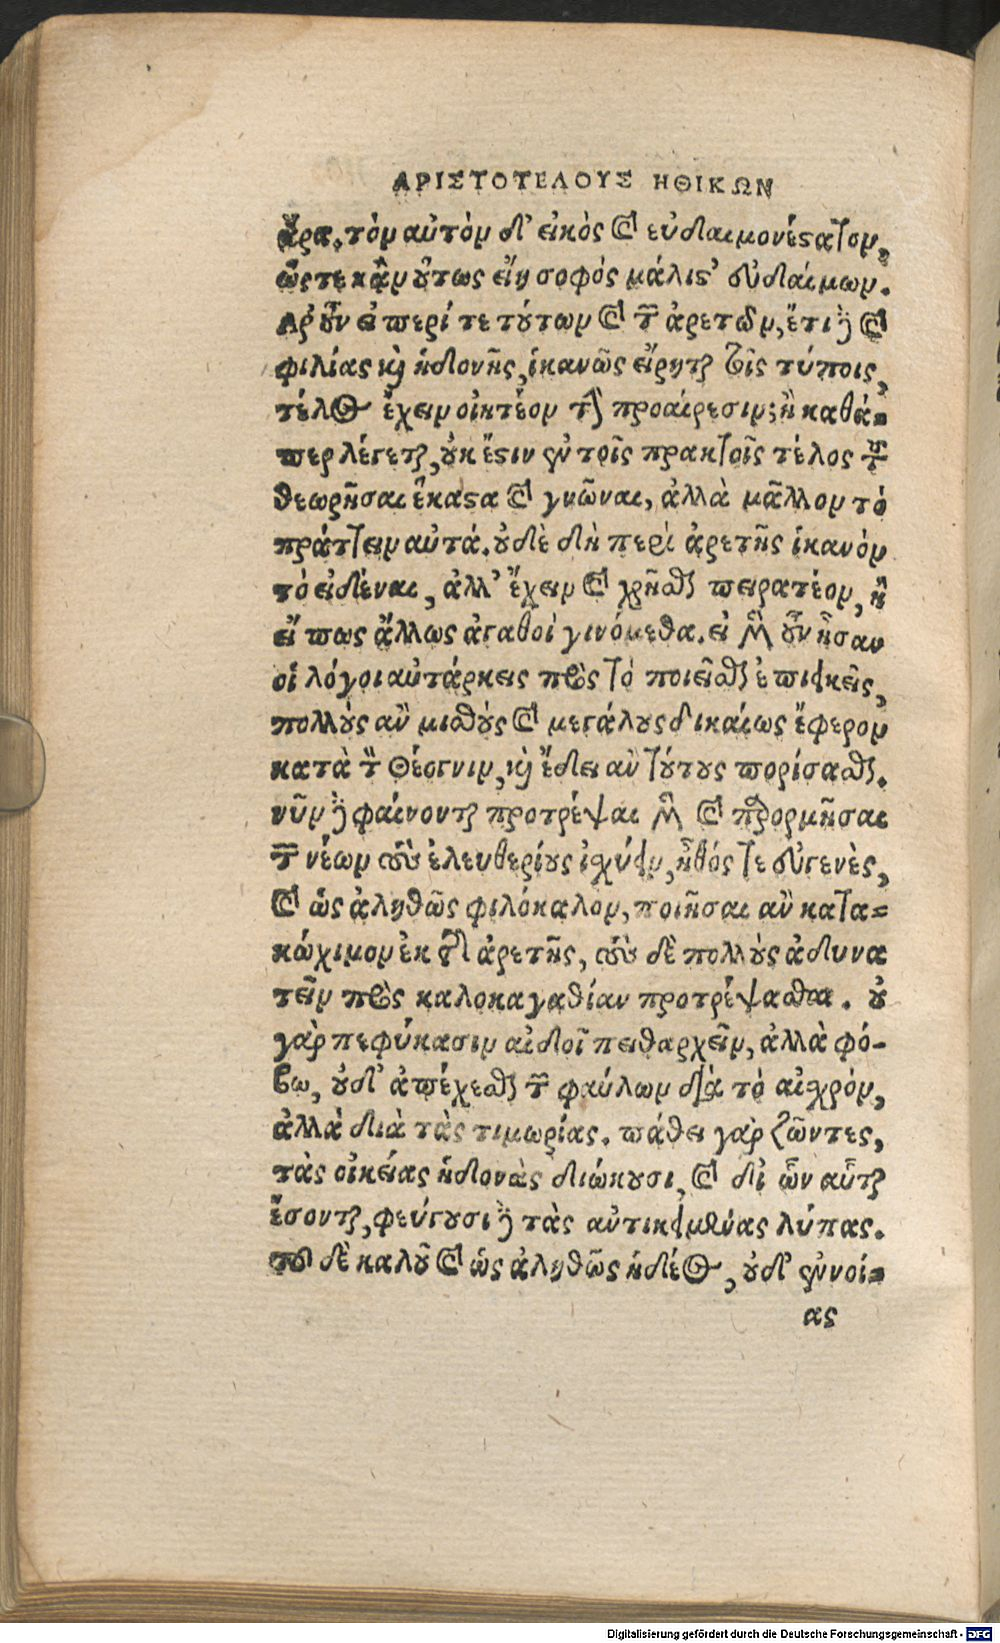 ΑΡΙΣΤΟΤΕΛΟΥΣ ΗΘΙΚΩΝ
ἄρα. τὸν αὐτὸν δ' εἰκὸς καὶ εὐδαιμονέστατον,
ὥστε κἂν οὕτως εἴη σοφὸς μάλιστ' εὐδαίμων.
Αρ' οὖν εἰ περί τε τούτων καὶ τῶν ἀρετῶν, ἔτι δὲ καὶ
φιλίας καὶ ἡδονῆς, ἱκανῶς εἴρηται τοῖς τύποις,
τέλος ἔχειν οἰητέον τὴν προαίρεσιν; ἢ καθά-
περ λέγεται, οὐκ ἔστιν ἐν τοῖς πρακτοῖς τέλος τὸ
θεωρῆσαι ἕκαστα καὶ γνῶναι, ἀλλὰ μᾶλλον τὸ
πράττειν αὐτά. οὐδὲ δὴ περὶ ἀρετῆς ἱκανὸν
τὸ εἰδέναι, ἀλλ' ἔχειν καὶ χρῆσθαι πειρατέον, ἢ
εἴ πως ἄλλως ἀγαθοὶ γινόμεθα. εἰ μὲν οὖν ἦσαν
οἱ λόγοι αὐτάρκεις πρὸς τὸ ποιεῖσθαι ἐπιεικεῖς,
πολλοὺς ἂν μισθοὺς καὶ μεγάλους δικαίως ἔφερον
κατὰ τὸν Θέογνιν, καὶ ἔδει ἂν τούτους πορίσασθαι.
νῦν δὲ φαίνονται προτρέψαι μὲν καὶ παρορμῆσαι
τῶν νέων τοὺς ἐλευθερίους ἰσχύειν, ἦθός τε εὐγενὲς,
καὶ ὡς ἀληθῶς φιλόκαλον, ποιῆσαι ἂν κατα-
κώχιμον ἐκ τῆς ἀρετῆς, τοὺς δὲ πολλοὺς ἀδυνα
τεῖν πρὸς καλοκαγαθίαν προτρέψασθαι. οὐ
γὰρ πεφύκασιν αἰδοῖ πειθαρχεῖν, ἀλλὰ φό-
βω, οὐδ' ἀπέχεσθαι τῶν φαύλων διὰ τὸ αἰσχρὸν,
ἀλλὰ διὰ τὰς τιμωρίας. πάθει γὰρ ζῶντες,
τὰς οἰκείας ἡδονὰς διώκουσι, καὶ δι' ὧν αὗται
ἔσονται, φεύγουσι δὲ τὰς ἀντικειμένας λύπας.
τοῦ δὲ καλοῦ καὶ ὡς ἀληθῶς ἡδέος, οὐδ' ἐννοί-
ας
Digitalisierung gefördert durch die Deutsche Forschungsgemeinschaft - DFG